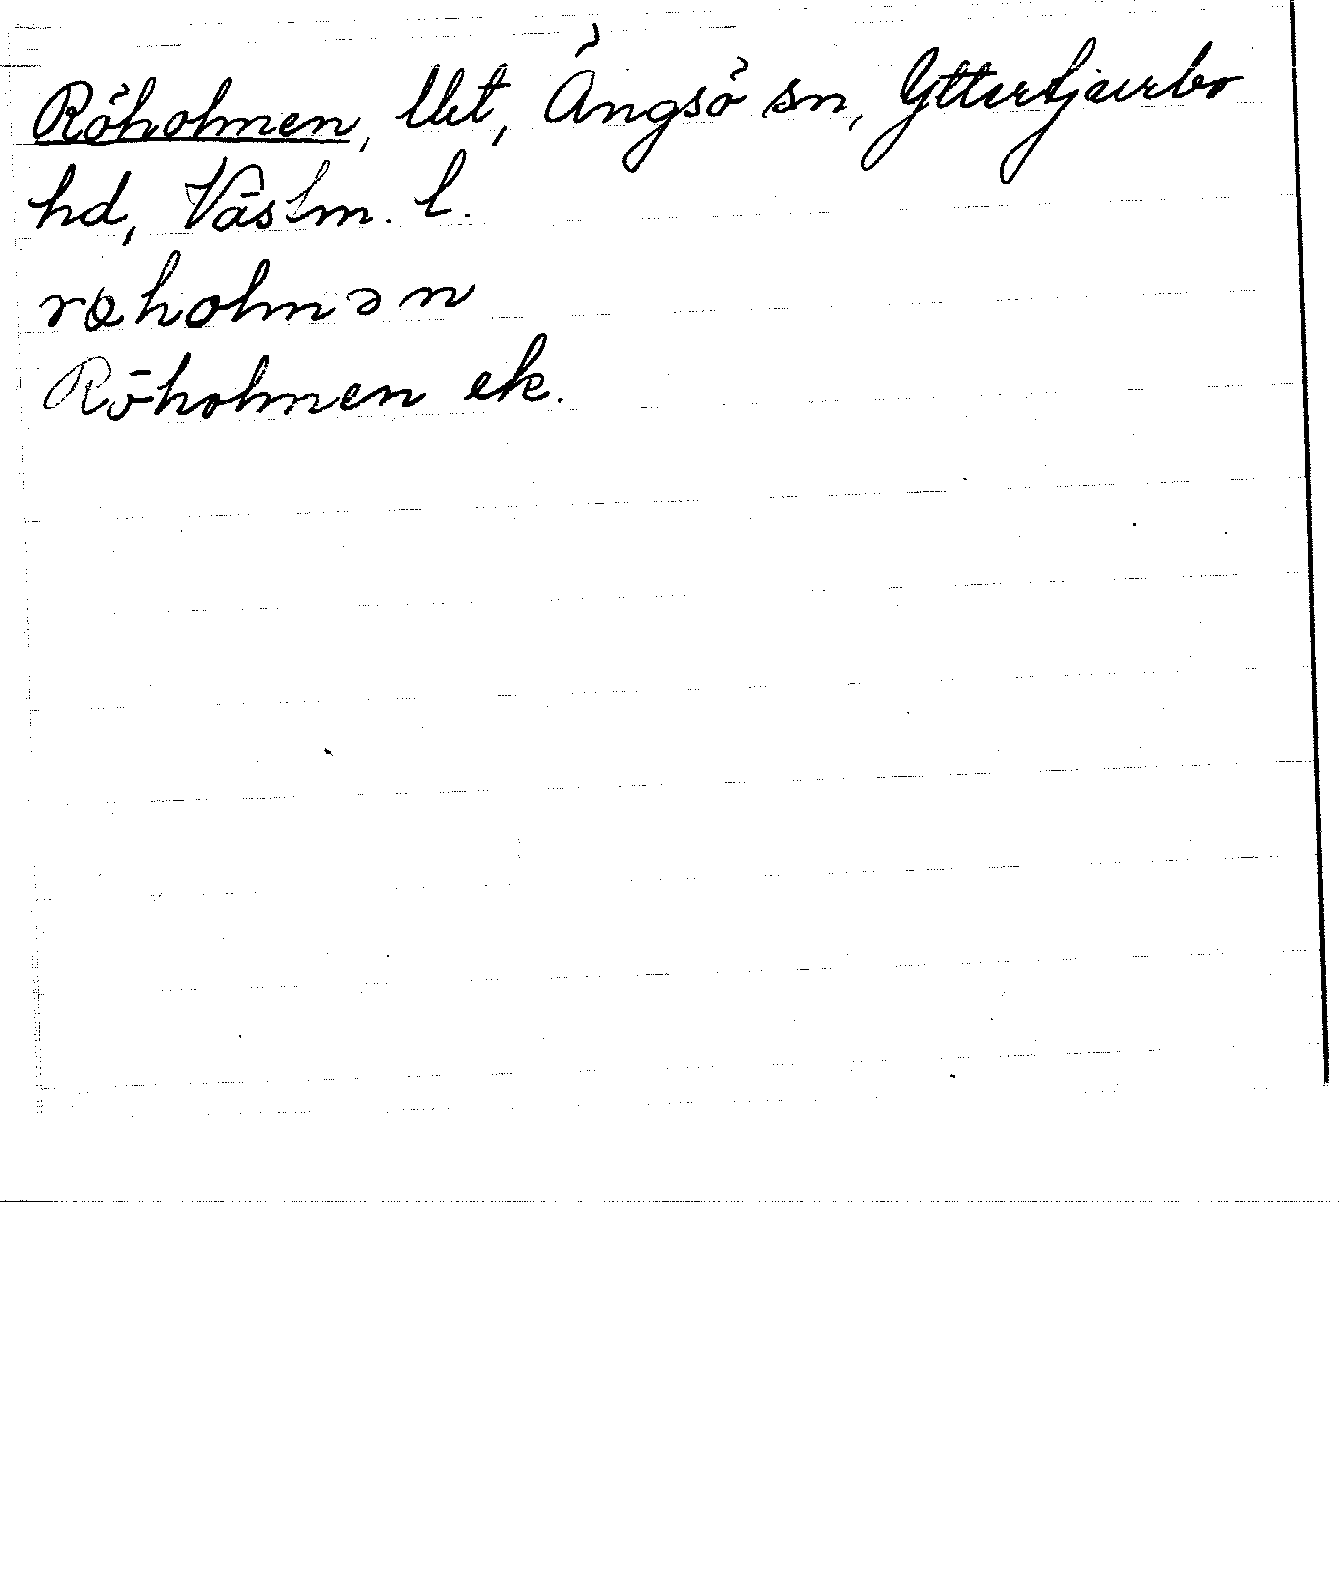 Röholmen, lht, Ängsö sn, Yttertjurbo
hd, Västm. l.
røholmən
Röholmen ek.